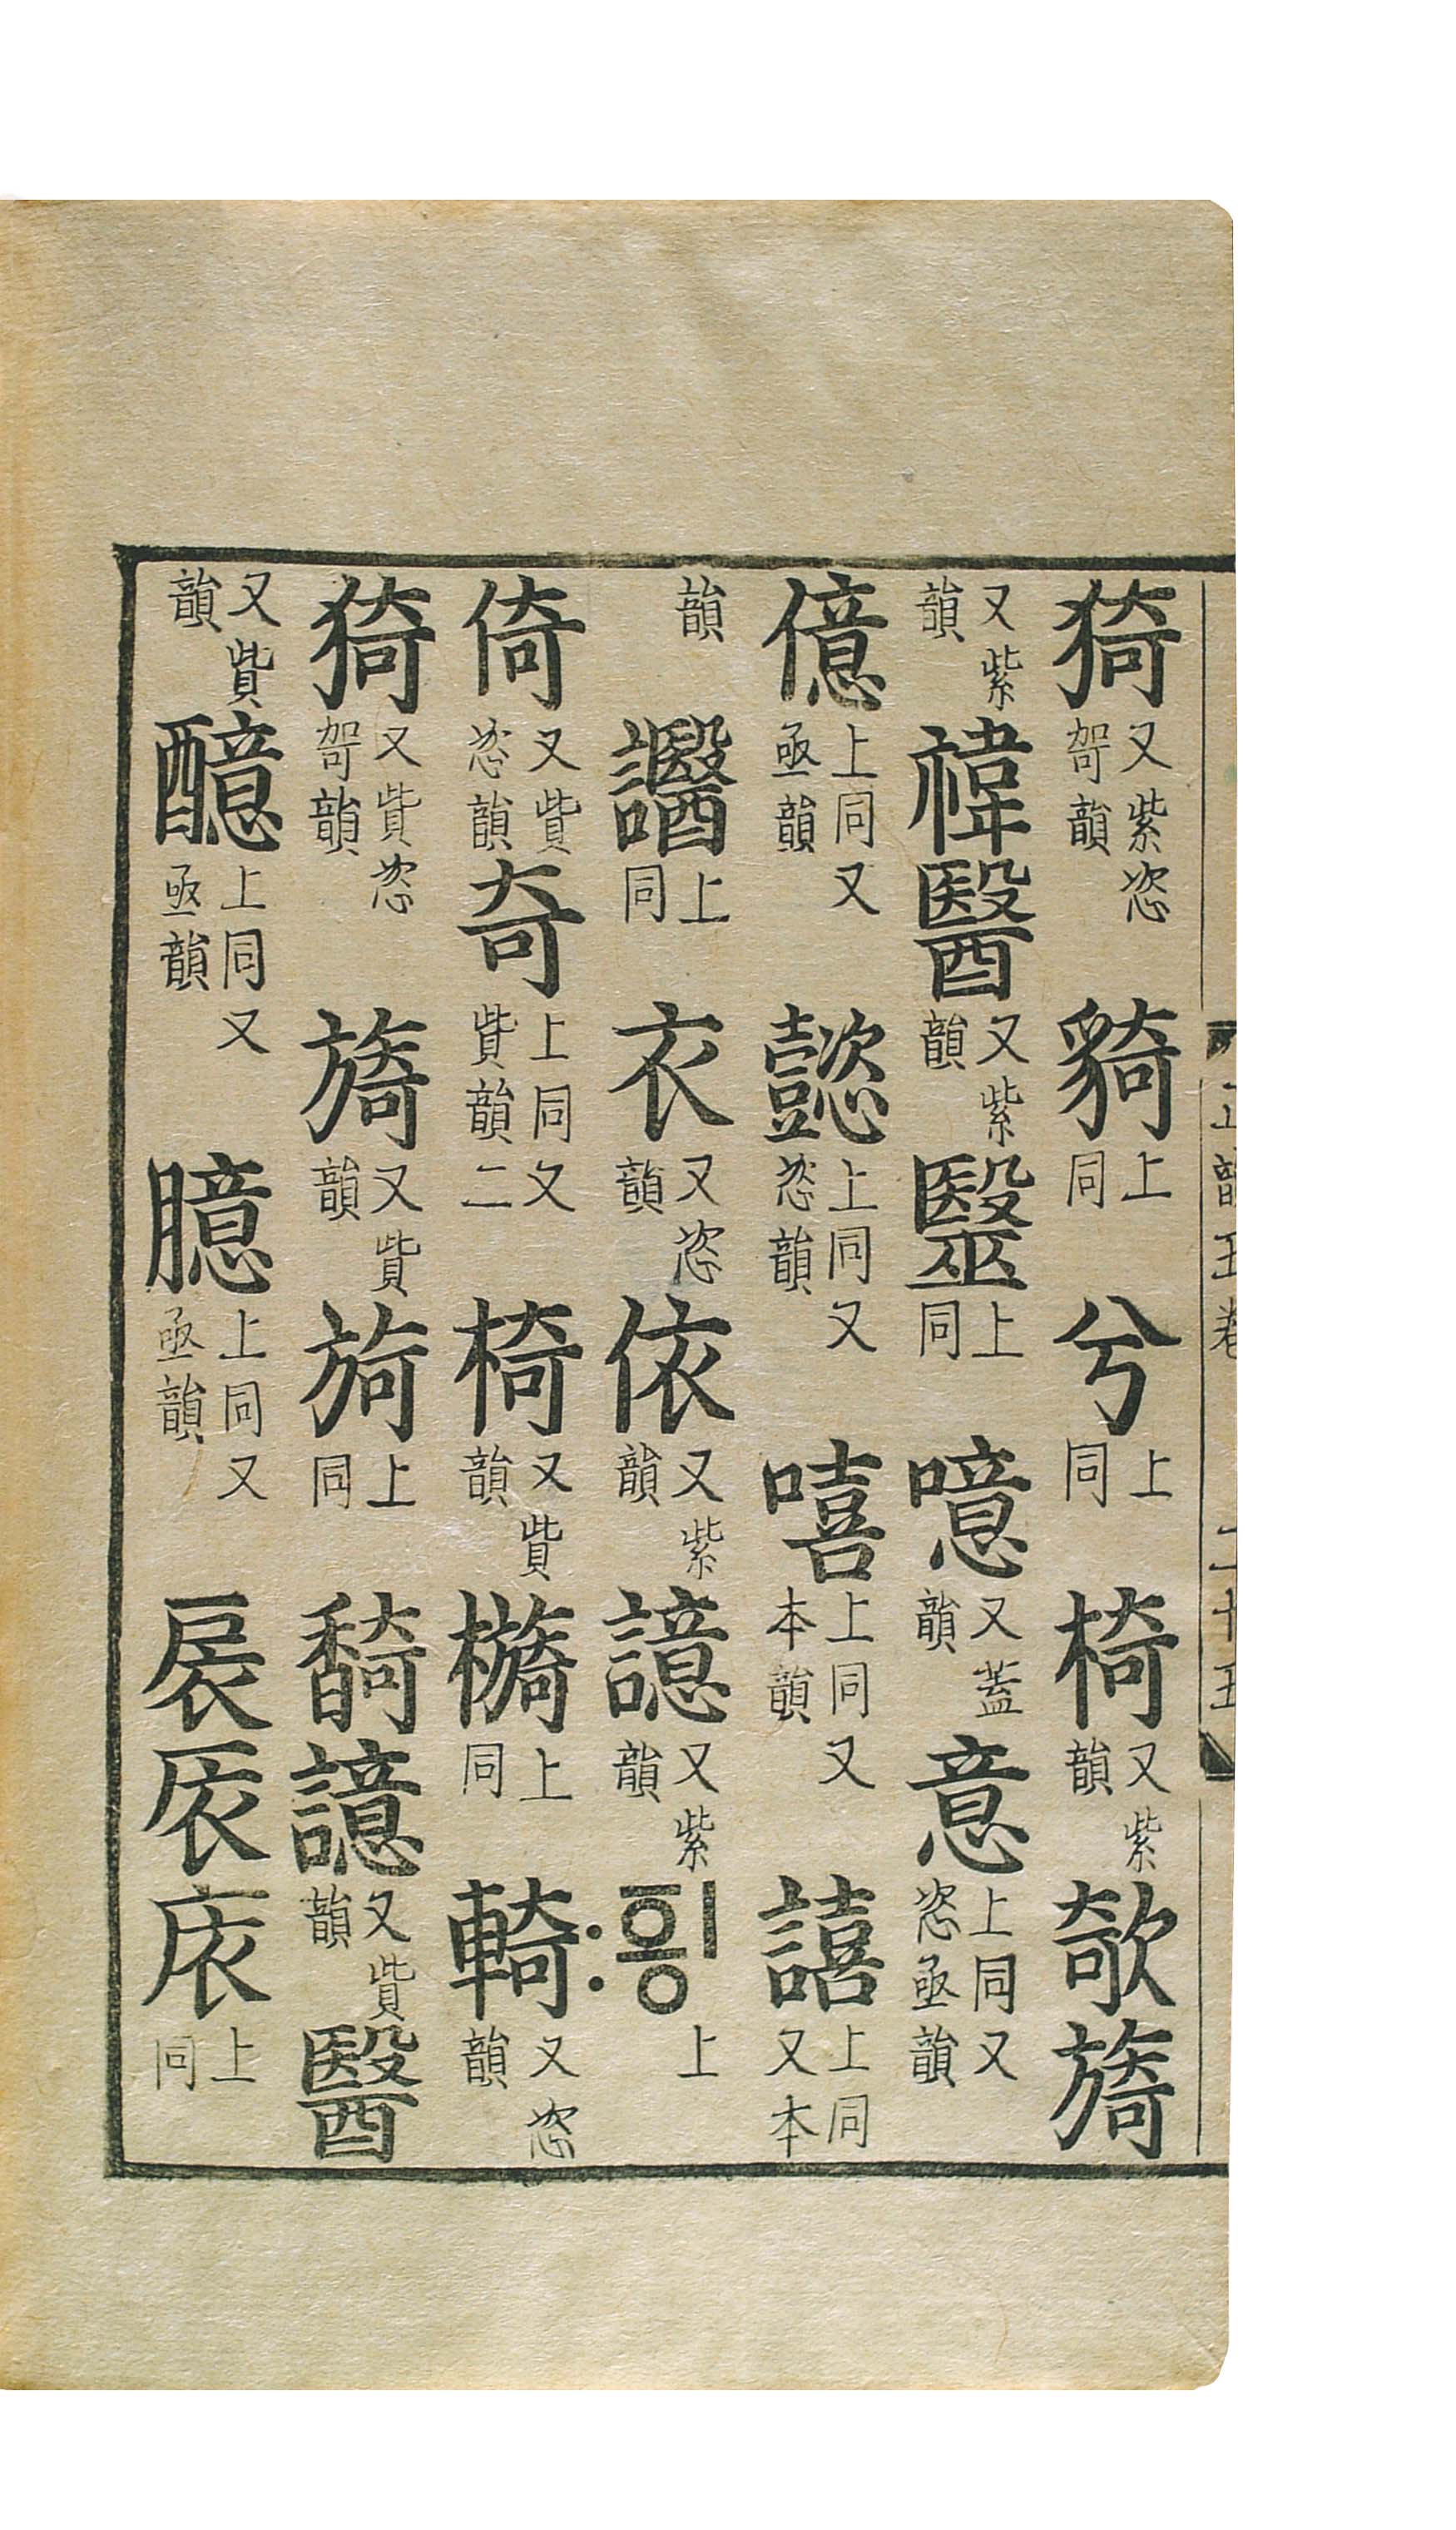 正韻五卷 二十五
猗又紫恣哿韻䝝上同兮上同椅又紫韻欹旖
又紫韻禕醫又紫韻毉上同噫又蓋韻意上同又恣亟韻
億上同又亟韻懿上同又恣韻嘻上同又本韻譆上同又本
韻上同衣又恣韻依又紫韻譩又紫韻ᅙᅴᆼ〯上
倚又貲恣韻奇上同又貲韻二椅又貲韻檹上同輢又恣韻
猗又貲恣哿韻旖又貲韻旑上同䭲譩又貲韻醫
又貲韻醷上同又亟韻臆上同又亟韻扆庡上同